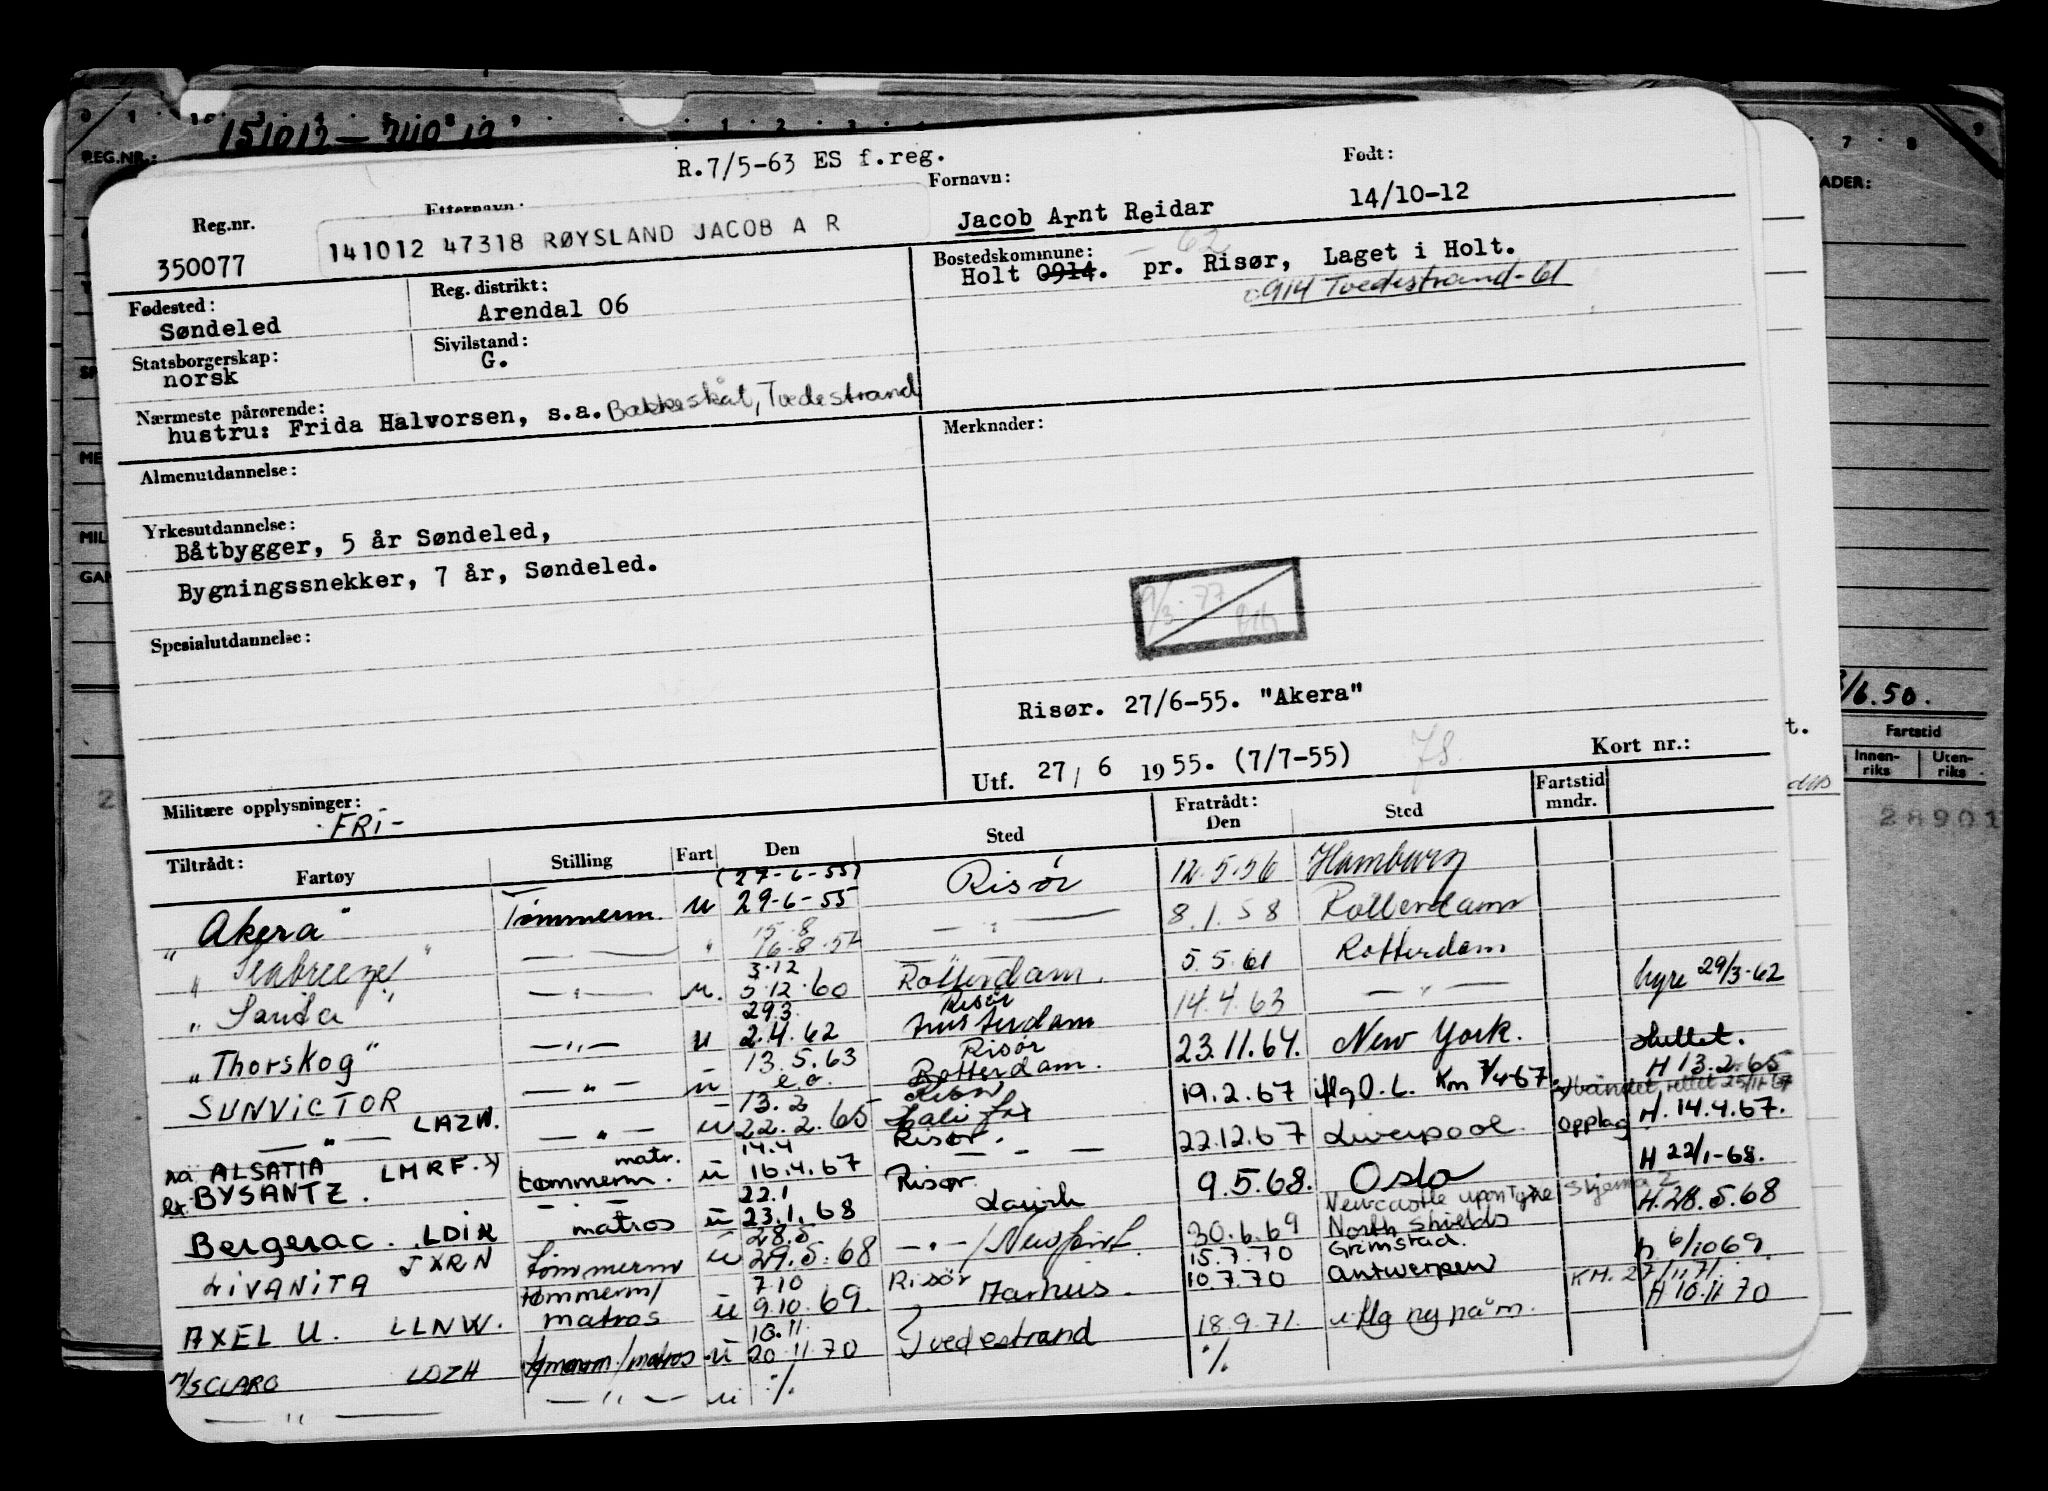 REG.NR.:
R.7/5-63 ES f.reg.
Reg.nr. Etternavn: Fornavn: Født:
350077 141012 47318 RØYSLAND JACOB A R Jacob Arnt Reidar 14/10-12
Fødested: Reg. distrikt: Bostedskommune: - 62
Søndeled Arendal 06 Holt 0914. pr. Risør, Laget i Holt.
0914 Tvedestrand-61
Statsborgerskap: Sivilstand:
norsk G.
Nærmeste pårørende:
hustru: Frida Halvorsen, s.a. Bakkeskåt, Tvedestrand
Almenutdannelse: Merknader:
Yrkesutdannelse:
Båtbygger, 5 år Søndeled,
Bygningssnekker, 7 år, Søndeled.
9/3-77
Spesialutdannelse:
Risør. 27/6-55. "Akera"
Utf. 27/ 6 1955. (7/7-55) Kort nr.:
Militære opplysninger:
-FRI-
Tiltrådt: Fratrådt: Fartstid mndr.
Fartøy Stilling Fart Den Sted Den Sted
(27-6-55)
"Akera" Tømmerm. u 29-6-55 Risør 12.5.56 Hamburg
15.8
"Seabreeze" — " — " 16.8.57 — " — 8.1.58 Rotterdam
3.12
"Sarita" — " — u. 5.12.60 Rotterdam. 5.5.61 Rotterdam
29.3 Risør
"Thorskog" — " — u 2.4.62 Amsterdam 14.4.63 — " — hyre 29/3-62
13.5.63 Risør
SUNVICTOR — " — u e.o. Rotterdam. 23.11.64. New York. sluttet.
13.2 Risør H 13.2.65
— " — LAZW. — " — u 22.2.65 Halifax 19.2.67 iflg O.L. Km 7/4-67
14.4 Risør.
na ALSATIA LMRF. matr.
BYSANTZ. tømmerm. u 16.4.67 — - — 22.12.67 Liverpool. opplag H. 14.4.67.
22.1 Risør
Bergerac. LDIK matros u 23.1.68 Larvik 9.5.68. Oslo H 22/1-68.
28.5 Newcastle upon Tyne skjema 2
LIVANITA JXRN Tømmerm u 29.5.68 — " — / Newport. 30.6.69 North Shields H. 28.5.68
7.10 Risør 15.7.70 Grimstad.
AXEL U. LLNW. tømmerm/ matros u 9.10.69. Aarhus. 10.7.70 Antwerpen H 6/10 69.
10.11. KM. 27/11 71.
M/S CLARO LDZH tømmerm/matros u 20.11.70 Tvedestrand 18.9.71. iflg ny påm. H 10.11 70
— " — — " — u ./. ./.
/6.50.
Fartstid
Innen-riks Uten-riks